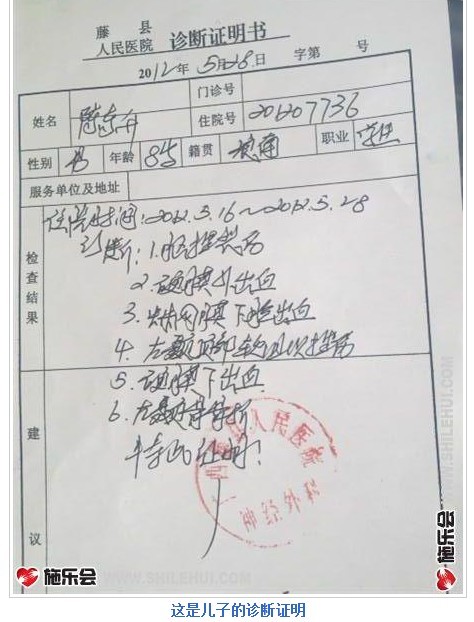 藤县
人民医院 诊断证明书
2012年 5月28日 字第 号
姓名 滕东舟 门诊号
住院号 201207736
性别 男 年龄 8岁 籍贯 职业
服务单位及地址
检查结果
住院时间:2012.5.16~2012.5.28
诊断:1.脑挫裂伤
2.硬膜外出血
3.蛛网膜下腔出血
4.左颞顶部
5.硬膜下出血
6.左颞骨骨折
特此证明!
建议
人民医院
神经外科
WWW.SHILEHUI.COM
施乐会 WWW.SHILEHUI.COM 施乐会
这是儿子的诊断证明